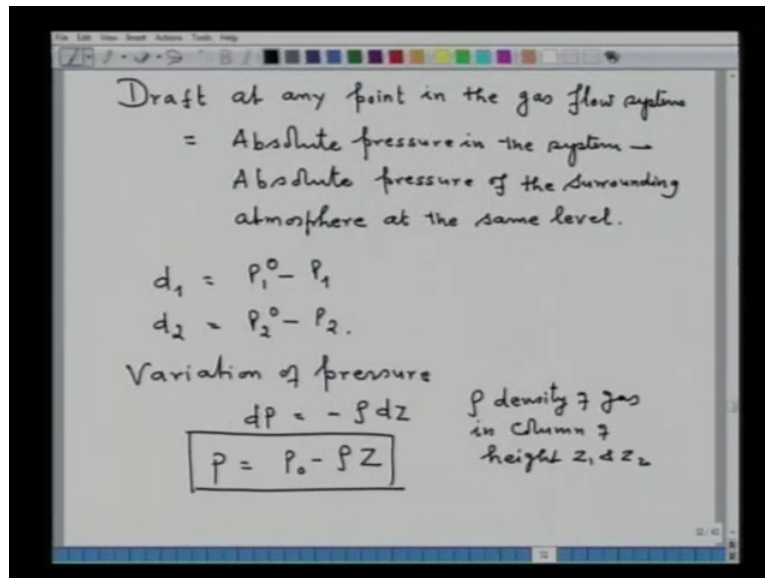 File Edit View Insert Actions Tools Help
Draft at any point in the gas flow system
= Absolute pressure in the system -
Absolute pressure of the surrounding
atmosphere at the same level.
d₁ = P₁⁰ - P₁
d₂ = P₂⁰ - P₂.
Variation of pressure
dP = - ρ dZ
P = P₀ - ρ Z
ρ density of gas
in column of
height Z₁ & Z₂